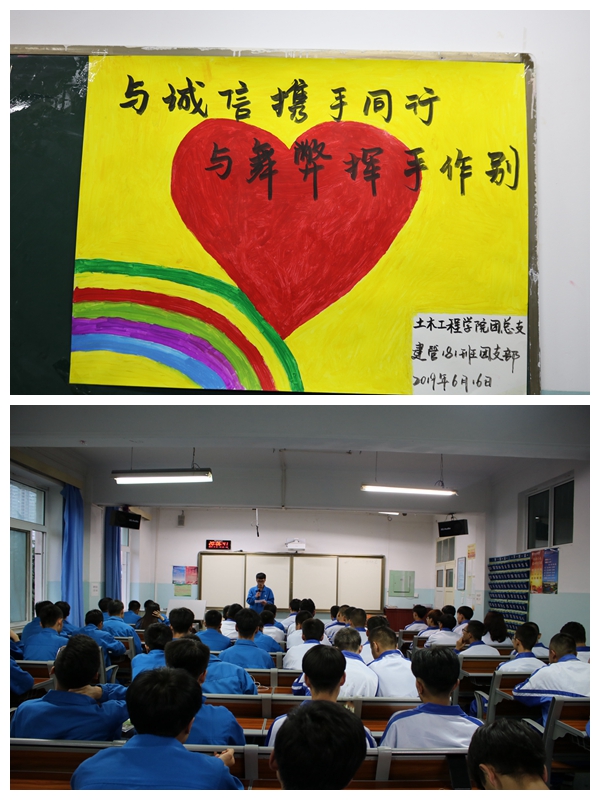 与诚信携手同行
与舞弊挥手作别
土木工程学院团总支
建管181班团支部
2019年6月16日